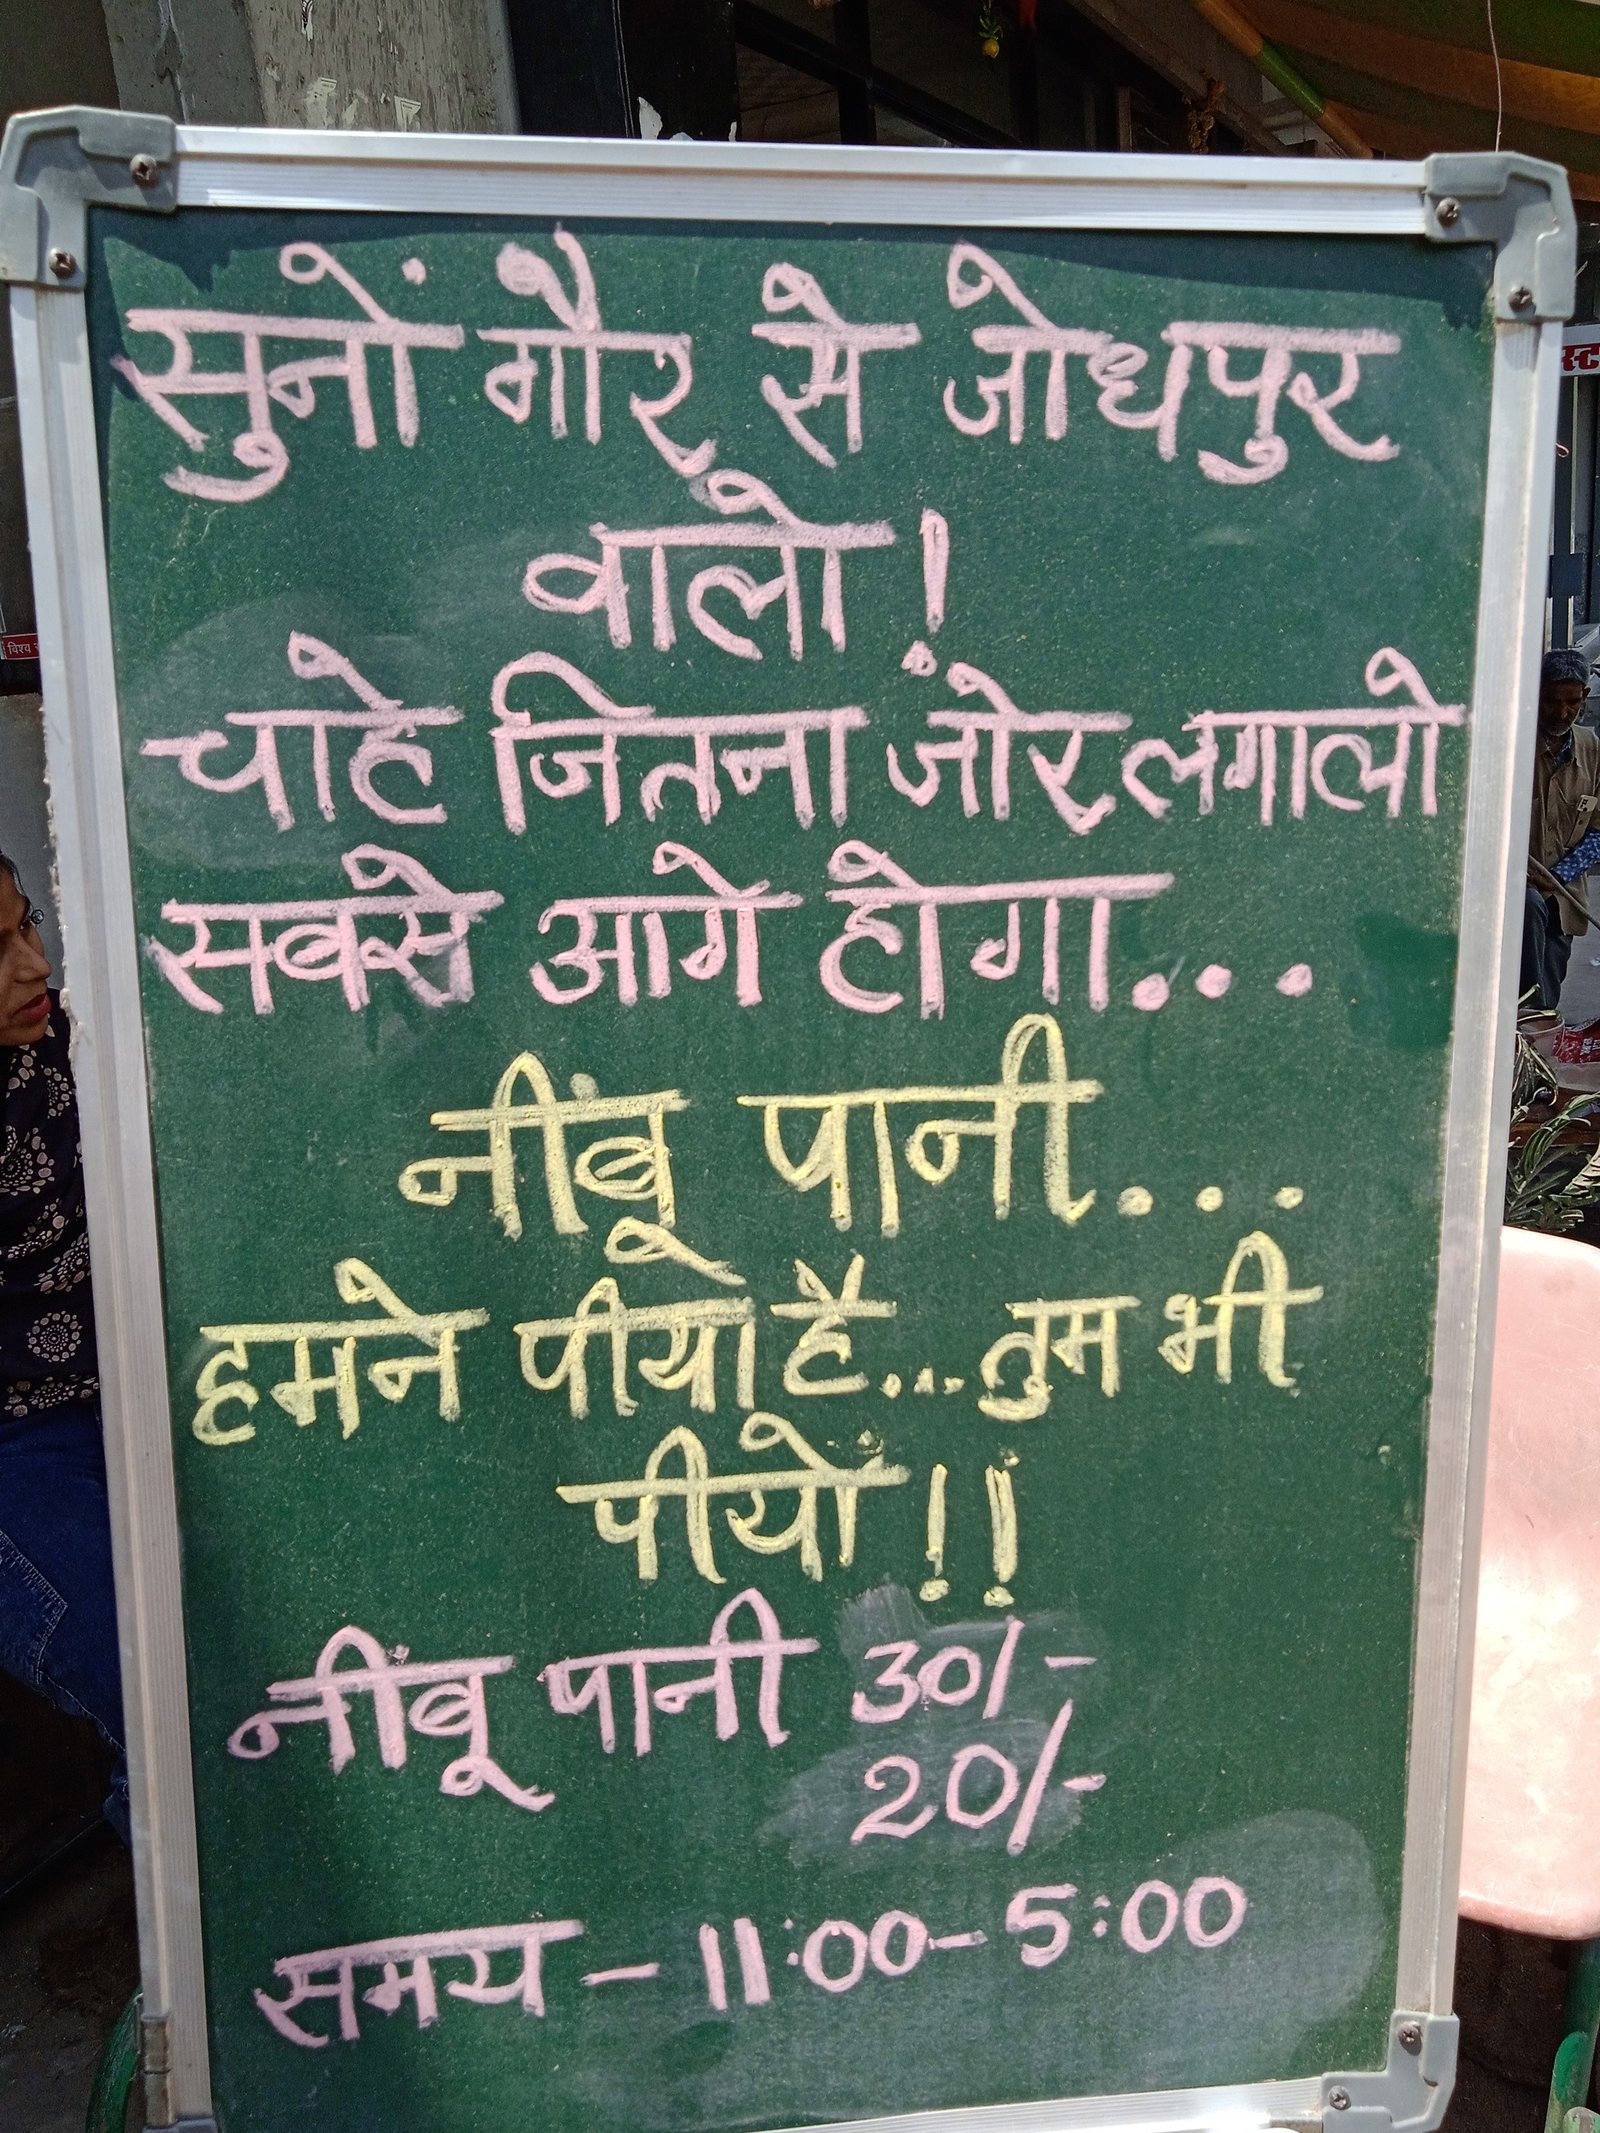 सुनों गौर से जोधपुर
वालो !
चाहे जितना जोर लगालो
सबसे आगे होगा...
नींबू पानी...
हमने पीया है... तुम भी
पीयों !!
नींबू पानी 30/-
20/-
समय - 11:00 - 5:00
विश्व